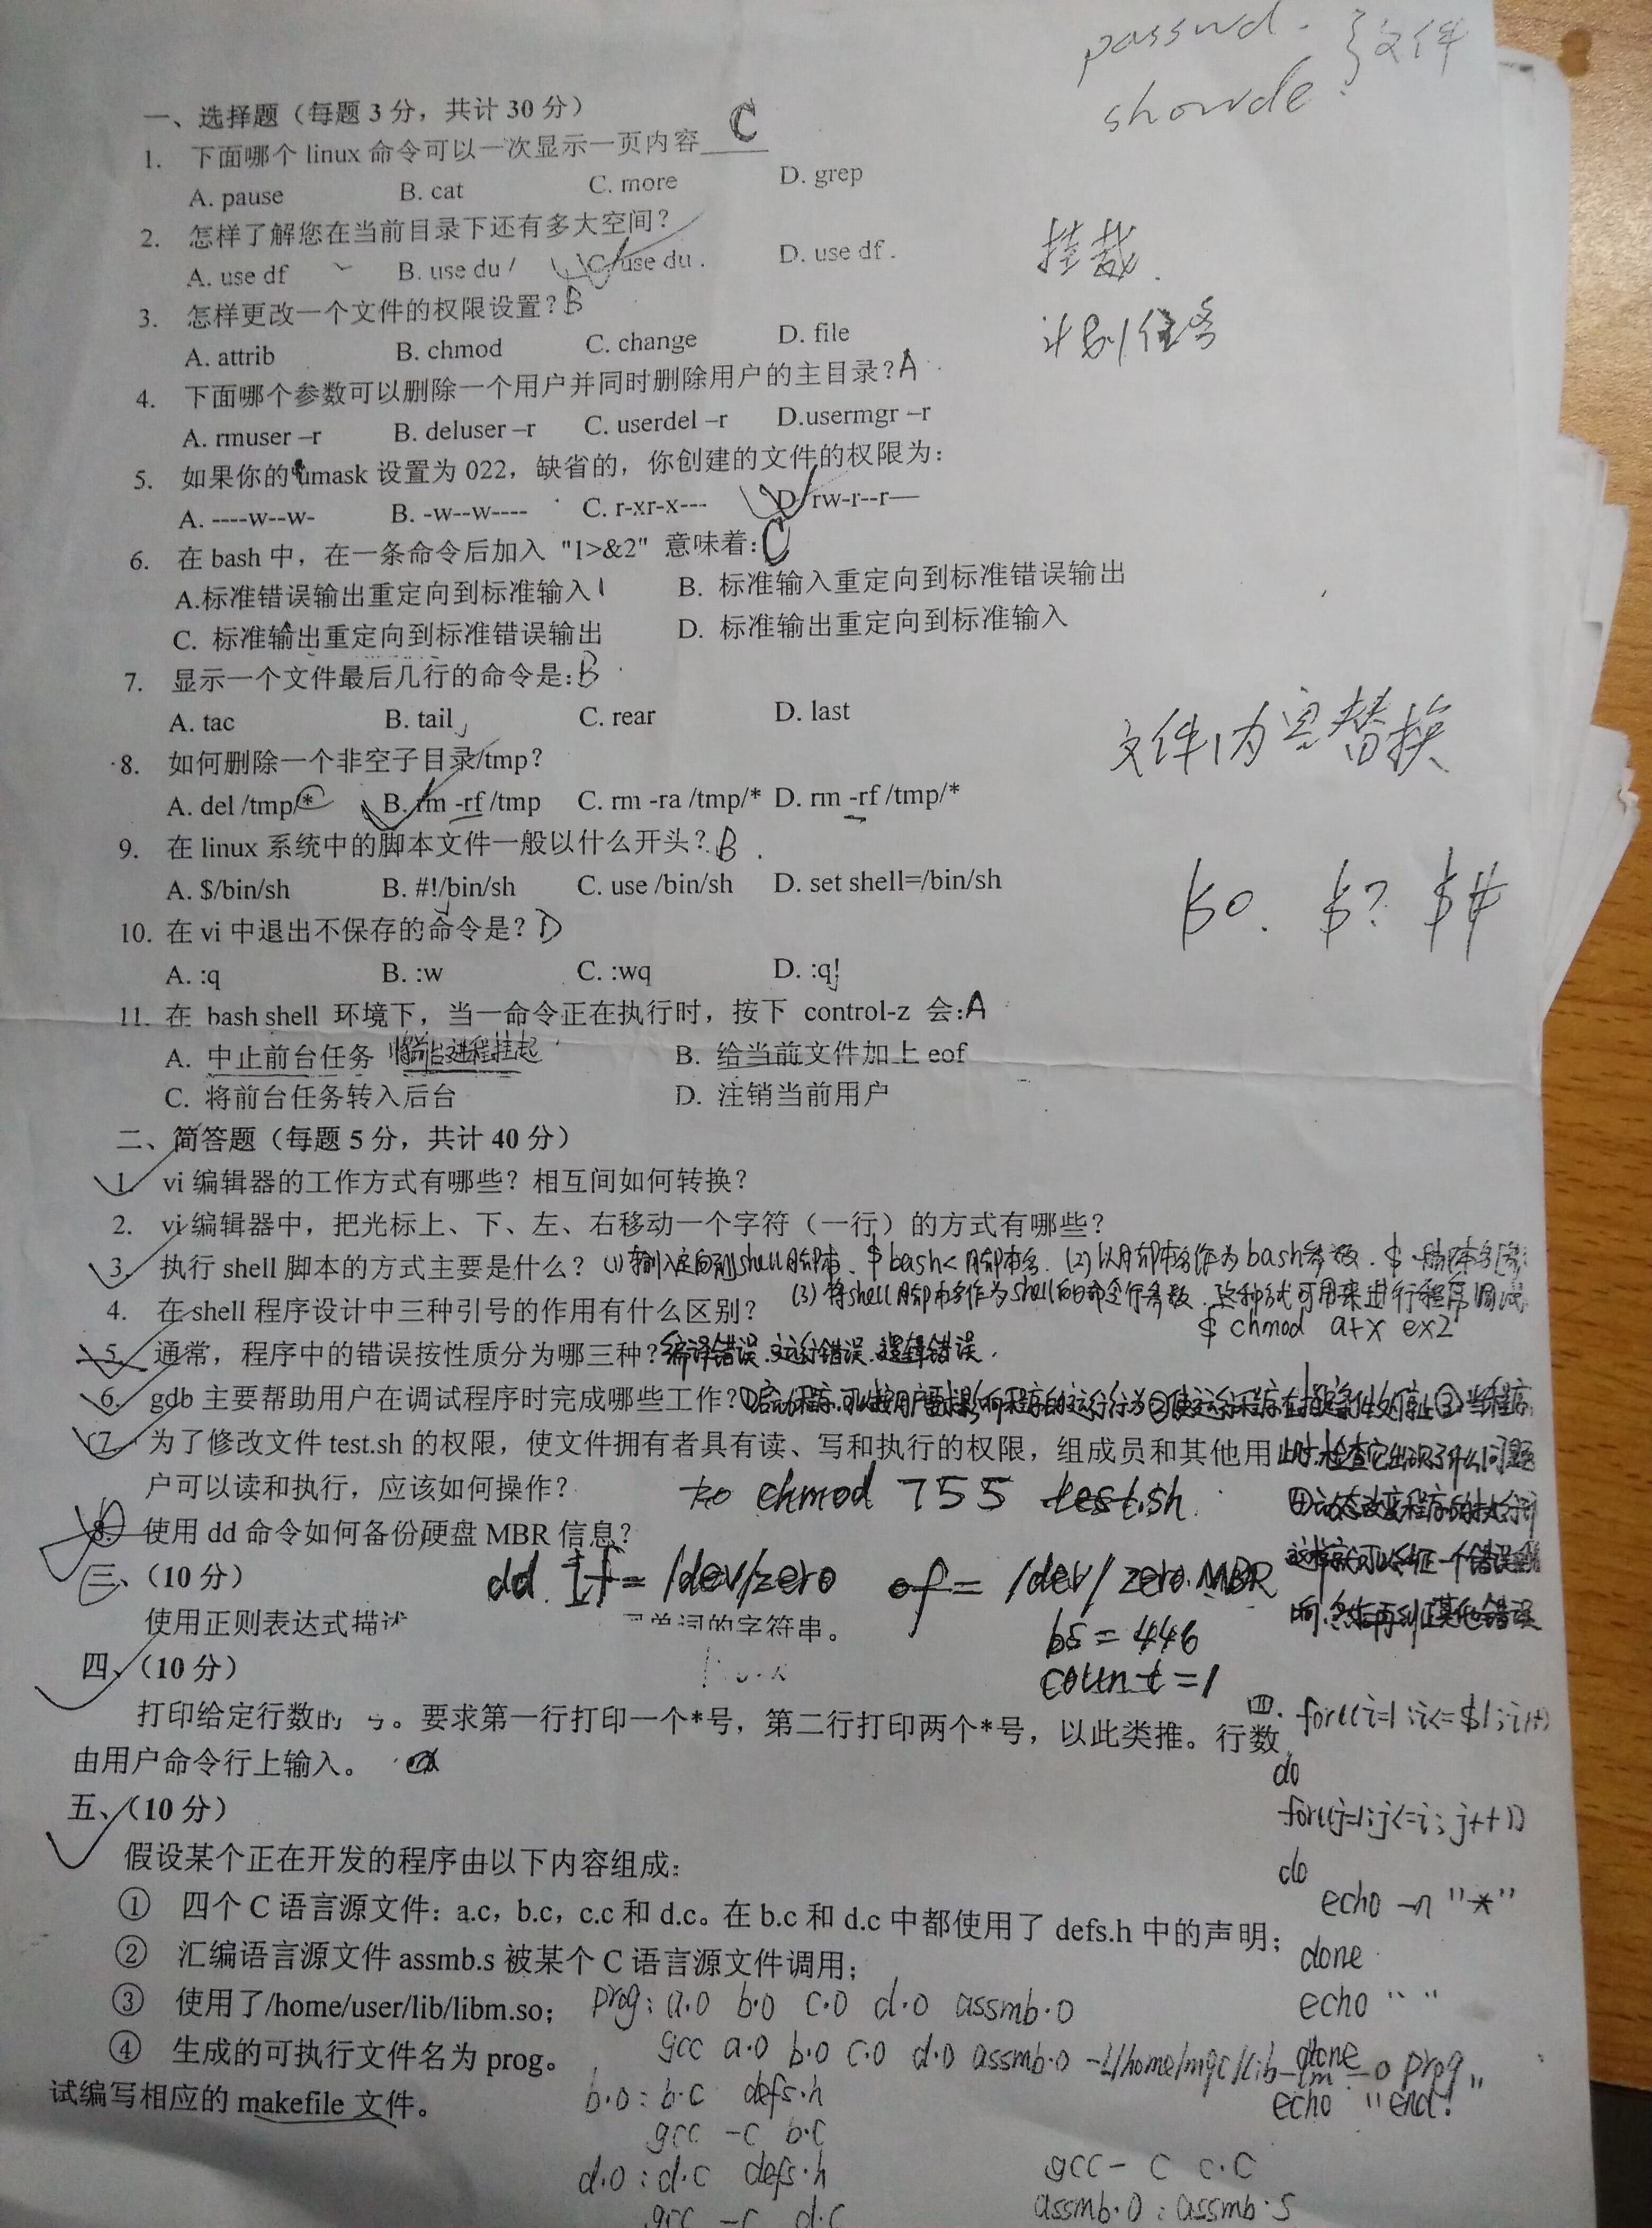 passwd. }文件
一、选择题（每题 3 分，共计 30 分）
1. 下面哪个 linux 命令可以一次显示一页内容____ C
A. pause B. cat C. more D. grep
2. 怎样了解您在当前目录下还有多大空间？
A. use df B. use du / C. use du . D. use df .
挂载.
3. 怎样更改一个文件的权限设置？B
A. attrib B. chmod C. change D. file
计划任务
4. 下面哪个参数可以删除一个用户并同时删除用户的主目录？A
A. rmuser –r B. deluser –r C. userdel –r D.usermgr –r
5. 如果你的 umask 设置为 022，缺省的，你创建的文件的权限为：
A. ----w--w- B. -w--w---- C. r-xr-x--- D. rw-r--r—
6. 在 bash 中，在一条命令后加入 "1>&2" 意味着：C
A.标准错误输出重定向到标准输入 B. 标准输入重定向到标准错误输出
C. 标准输出重定向到标准错误输出 D. 标准输出重定向到标准输入
7. 显示一个文件最后几行的命令是：B
A. tac B. tail C. rear D. last
文件内容替换
8. 如何删除一个非空子目录/tmp？
A. del /tmp/* B. rm -rf /tmp C. rm -ra /tmp/* D. rm -rf /tmp/*
9. 在 linux 系统中的脚本文件一般以什么开头？B.
A. $/bin/sh B. #!/bin/sh C. use /bin/sh D. set shell=/bin/sh
$0. $? $#
10. 在 vi 中退出不保存的命令是？D
A. :q B. :w C. :wq D. :q!
11. 在 bash shell 环境下，当一命令正在执行时，按下 control-z 会：A
A. 中止前台任务 进程挂起 B. 给当前文件加上 eof
C. 将前台任务转入后台 D. 注销当前用户
二、简答题（每题 5 分，共计 40 分）
1. vi 编辑器的工作方式有哪些？相互间如何转换？
2. vi 编辑器中，把光标上、下、左、右移动一个字符（一行）的方式有哪些？
3. 执行 shell 脚本的方式主要是什么？(1)输入定向到shell脚本. $ bash< 脚本名. (2)以脚本名作为bash参数. $
(3)将shell脚本名作为shell的命令行参数.这种方式可用来进行程序调试
4. 在 shell 程序设计中三种引号的作用有什么区别？
$ chmod a+x ex2
5. 通常，程序中的错误按性质分为哪三种？编译错误.运行错误.逻辑错误.
6. gdb 主要帮助用户在调试程序时完成哪些工作？①启动程序,可以按用户要求影响程序的运行行为②使运行程序在指定条件处停止③当程序
7. 为了修改文件 test.sh 的权限，使文件拥有者具有读、写和执行的权限，组成员和其他用 此时,检查它出现了什么问题
户可以读和执行，应该如何操作？ chmod 755 test.sh.
④动态改变程序的执行
8. 使用 dd 命令如何备份硬盘 MBR 信息？
三、（10 分） dd if= /dev/zero of= /dev/zero.MBR
这样就可以纠正一个错误的
使用正则表达式描述 单词的字符串。 bs = 446
响,然后再纠正其他错误
count =1
四、（10 分）
打印给定行数的 号。要求第一行打印一个*号，第二行打印两个*号，以此类推。行数
由用户命令行上输入。
四. for((i=1;i<=$1;i++)
do
for((j=1;j<=i;j++))
do
echo -n "*"
done
echo " "
done
echo "end!"
五、（10 分）
假设某个正在开发的程序由以下内容组成：
① 四个 C 语言源文件：a.c，b.c，c.c 和 d.c。在 b.c 和 d.c 中都使用了 defs.h 中的声明；
② 汇编语言源文件 assmb.s 被某个 C 语言源文件调用；
③ 使用了/home/user/lib/libm.so；
④ 生成的可执行文件名为 prog。
试编写相应的 makefile 文件。
prog: a.o b.o c.o d.o assmb.o
gcc a.o b.o c.o d.o assmb.o -L/home/mgc/lib -lm -o prog
b.o: b.c defs.h
gcc -c b.c
d.o: d.c defs.h
gcc -c d.c
gcc - c c.c
assmb.o: assmb.s